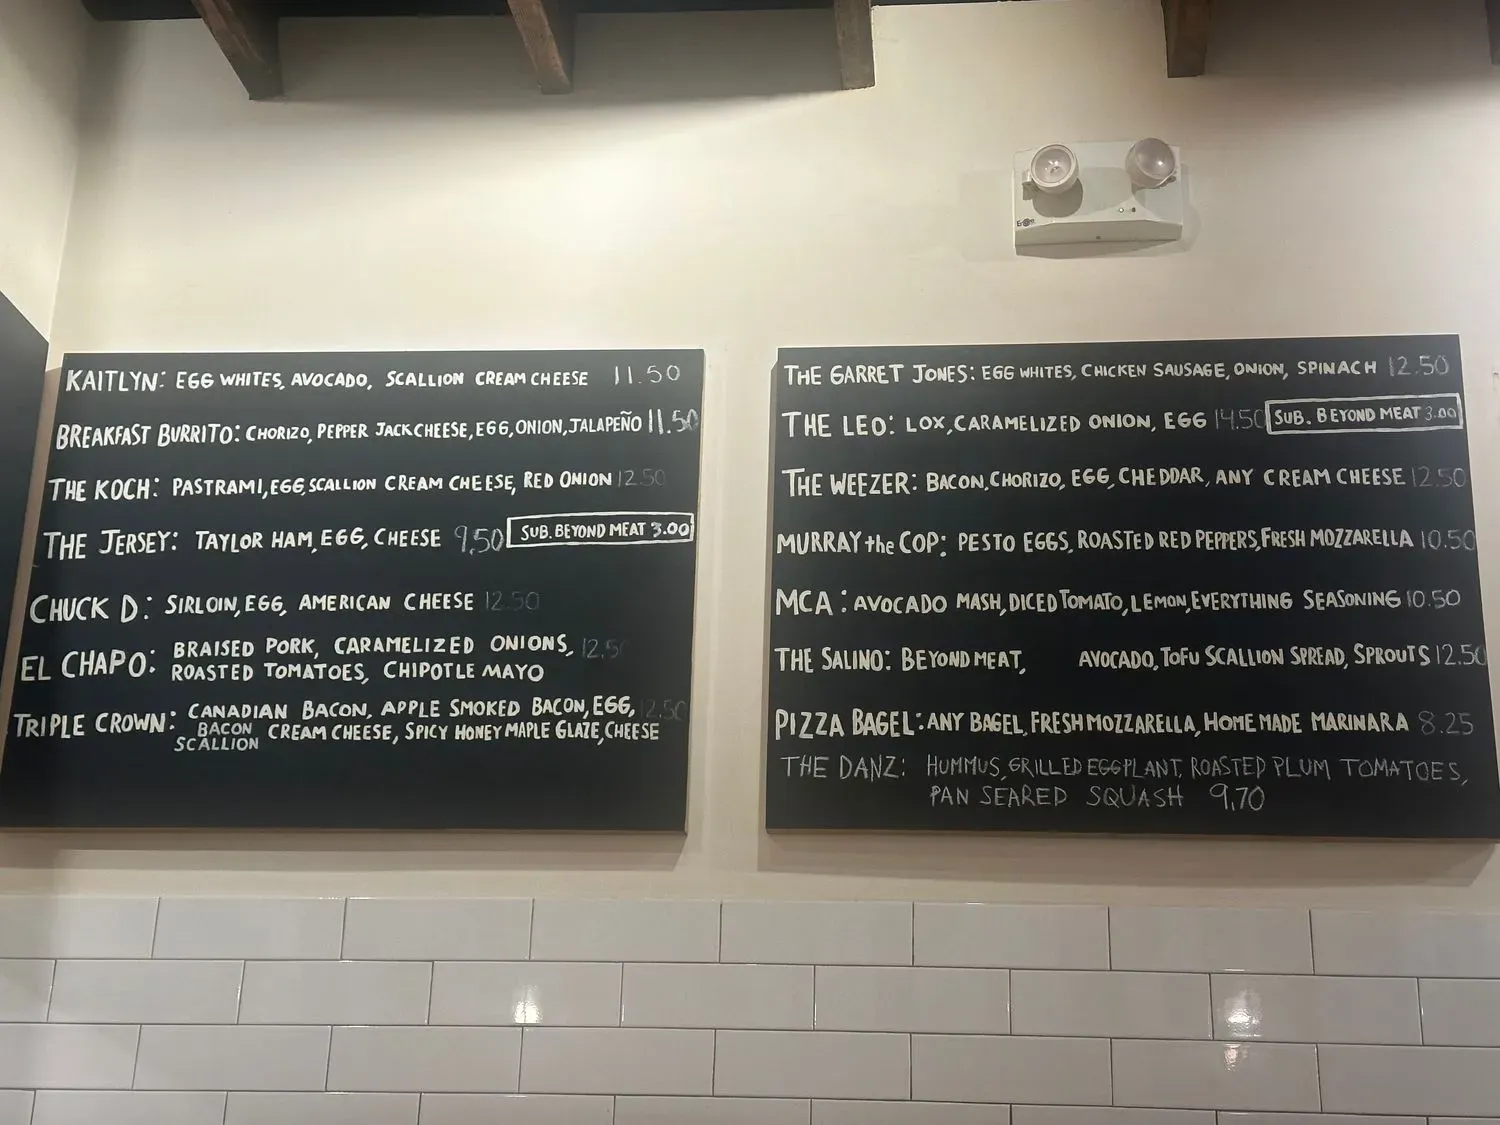 KAITLYN: EGG WHITES, AVOCADO, SCALLION CREAM CHEESE 11.50
BREAKFAST BURRITO: CHORIZO, PEPPER JACK CHEESE, EGG, ONION, JALAPEÑO 11.50
THE KOCH: PASTRAMI, EGG, SCALLION CREAM CHEESE, RED ONION 12.50
THE JERSEY: TAYLOR HAM, EGG, CHEESE 9.50 SUB. BEYOND MEAT 3.00
CHUCK D: SIRLOIN, EGG, AMERICAN CHEESE 12.50
EL CHAPO: BRAISED PORK, CARAMELIZED ONIONS, 12.50
ROASTED TOMATOES, CHIPOTLE MAYO
TRIPLE CROWN: CANADIAN BACON, APPLE SMOKED BACON, EGG, 12.50
BACON SCALLION CREAM CHEESE, SPICY HONEY MAPLE GLAZE, CHEESE
THE GARRET JONES: EGG WHITES, CHICKEN SAUSAGE, ONION, SPINACH 12.50
THE LEO: LOX, CARAMELIZED ONION, EGG 14.50 SUB. BEYOND MEAT 3.00
THE WEEZER: BACON, CHORIZO, EGG, CHEDDAR, ANY CREAM CHEESE 12.50
MURRAY the COP: PESTO EGGS, ROASTED RED PEPPERS, FRESH MOZZARELLA 10.50
MCA: AVOCADO MASH, DICED TOMATO, LEMON, EVERYTHING SEASONING 10.50
THE SALINO: BEYOND MEAT, AVOCADO, TOFU SCALLION SPREAD, SPROUTS 12.50
PIZZA BAGEL: ANY BAGEL, FRESH MOZZARELLA, HOME MADE MARINARA 8.25
THE DANZ: HUMMUS, GRILLED EGGPLANT, ROASTED PLUM TOMATOES,
PAN SEARED SQUASH 9.70